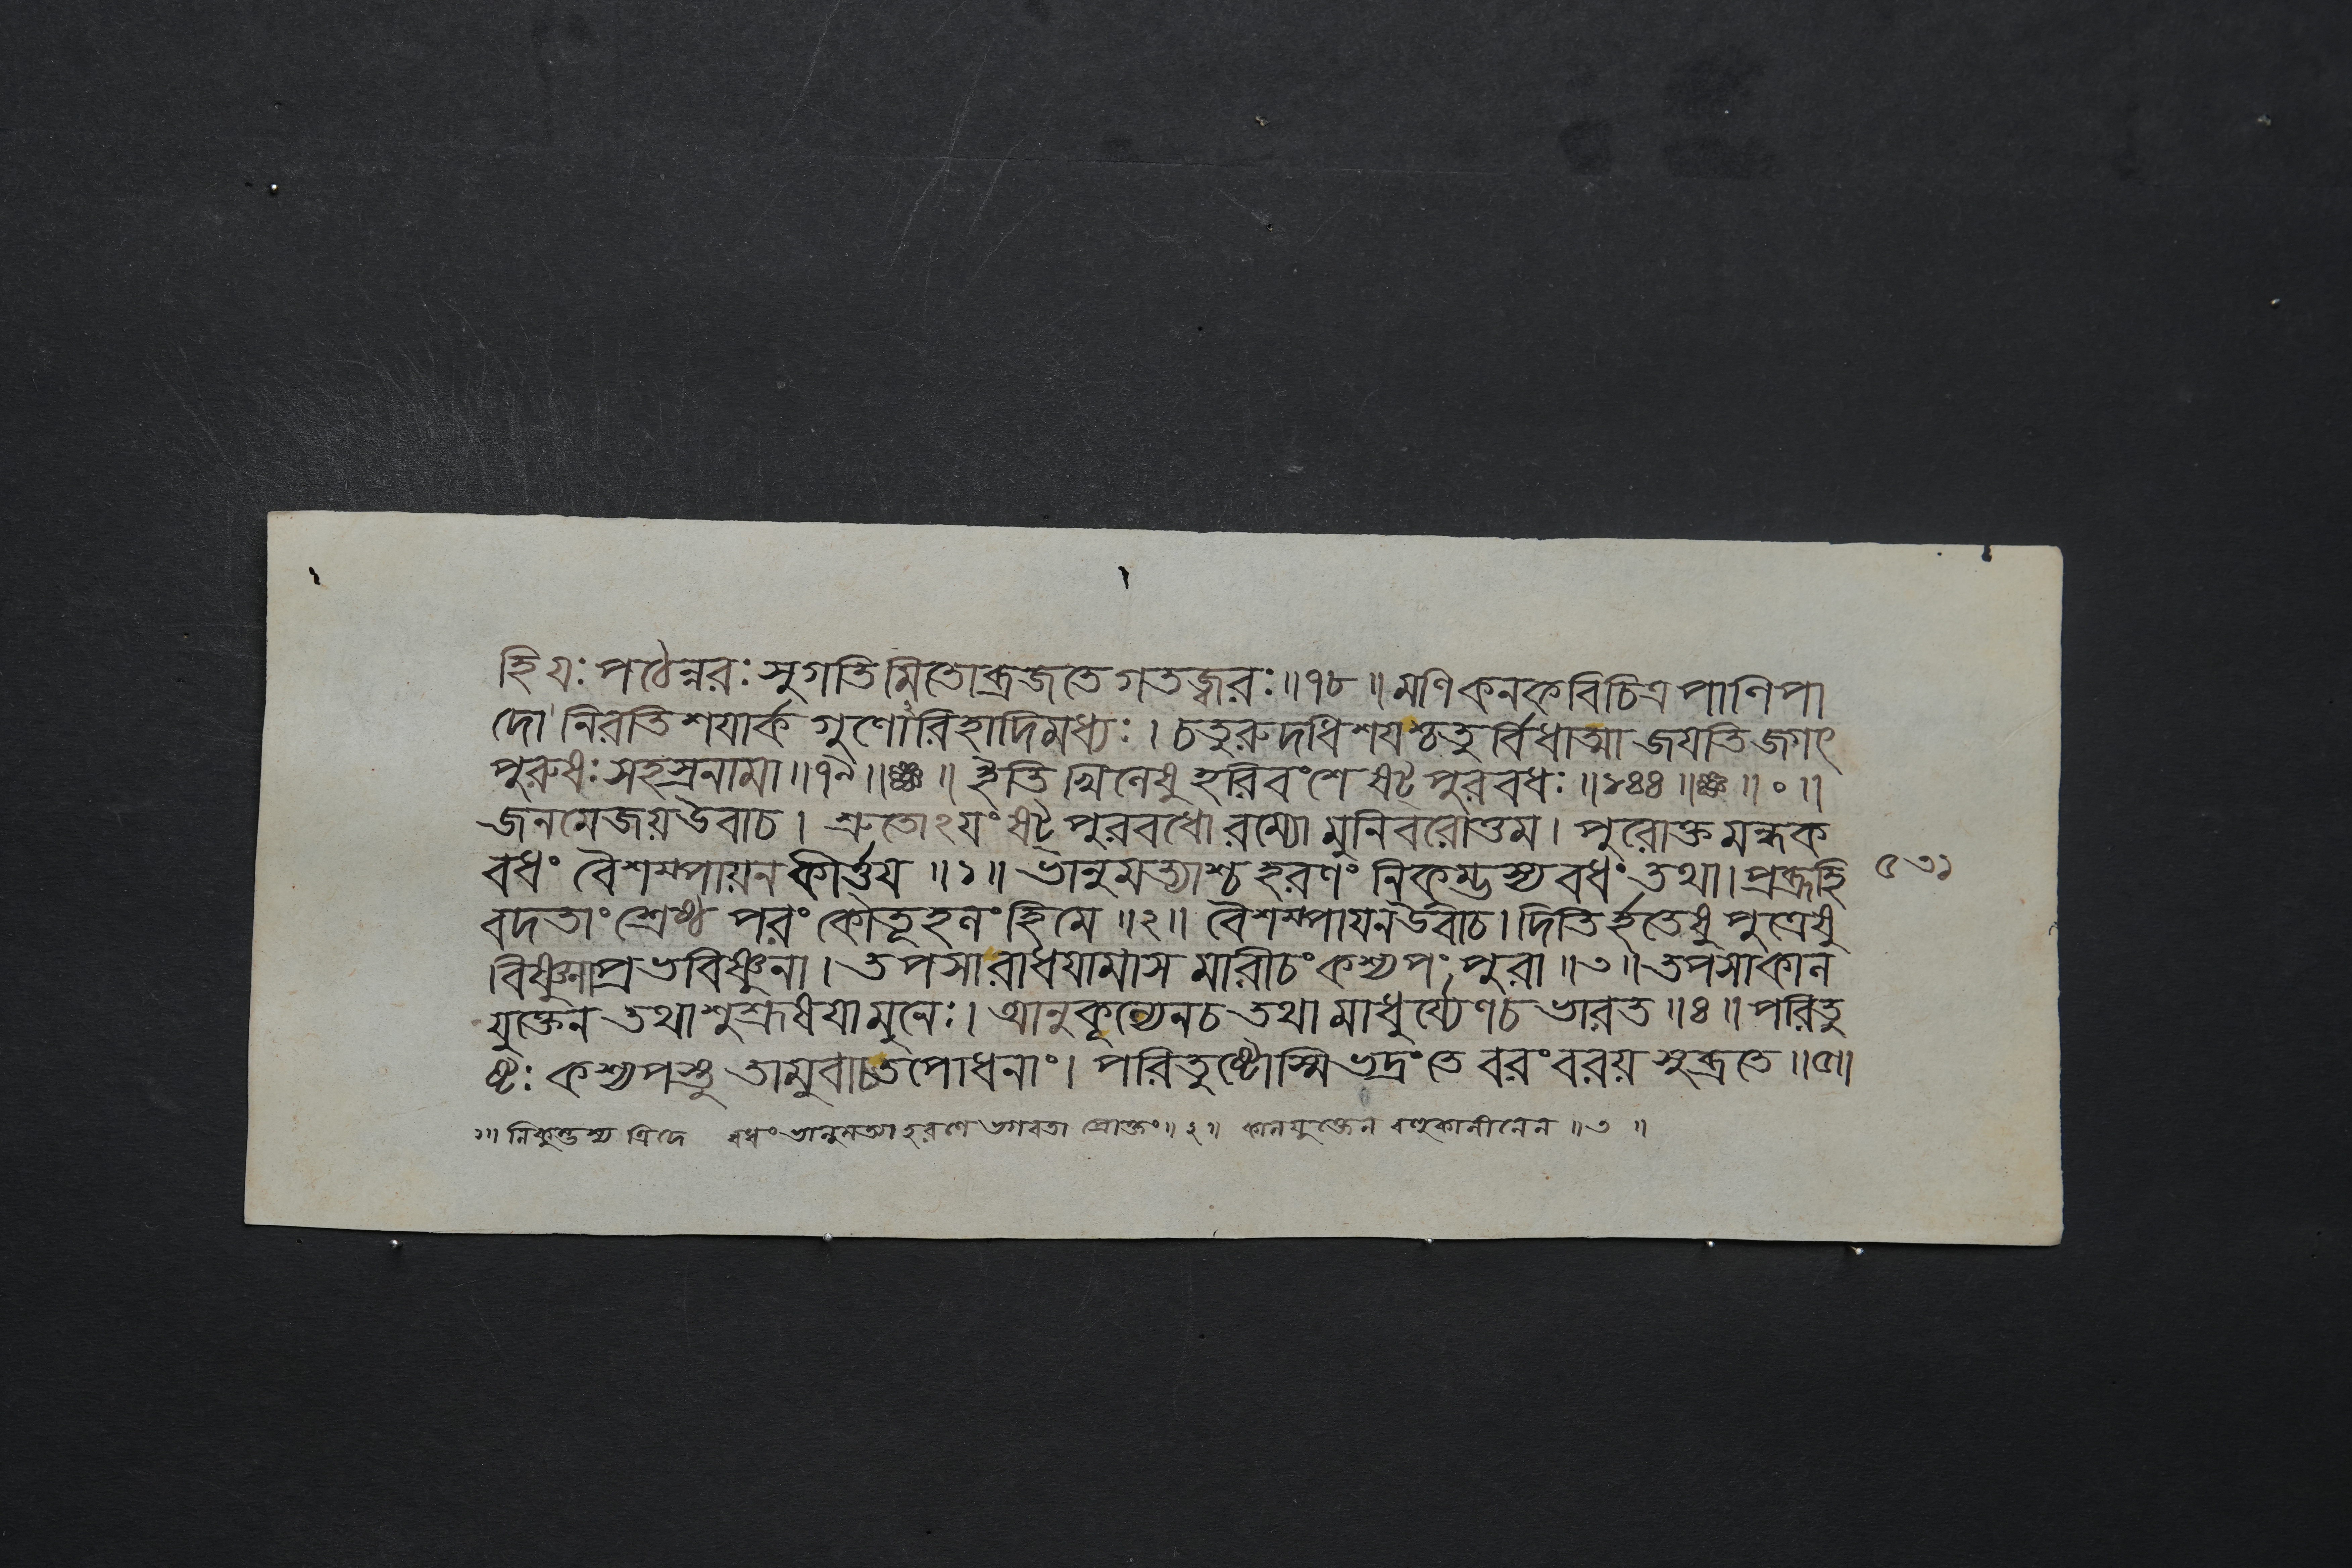 হি যঃ পঠেন্নরঃ সুগতিমিতো ব্রজতে গতজ্বরঃ ॥ ৭৮ ॥ মণিকনকবিচিত্রপাণিপা
দো নিরতিশযার্কগুণোরিহাদিমধ্যঃ । চতুরুদধিশযশ্চতুর্ব্বিধাত্মা জযতি জগৎ
পুরুষঃ সহস্রনামা ॥ ৭৯ ॥ ইতি খিলেষু হরিবংশে ষট্পুরবধঃ ॥ ১৪৪ ॥ ৹ ॥
জনমেজয় উবাচ । শ্রুতোঽযং ষট্পুরবধো রম্যো মুনিবরোত্তম । পুরোক্তমন্ধক
বধং বৈশম্পায়ন কীর্ত্তয ॥ ১ ॥ ভানুমত্যাশ্চ হরণং নিকুম্ভস্য বধং তথা । প্রব্রূহি
৫৩১
বদতাং শ্রেষ্ঠ পরং কৌতূহলং হি মে ॥ ২ ॥ বৈশম্পাযন উবাচ । দিতির্হতেষু পুত্রেষু
বিষ্ণুনা প্রভবিষ্ণুনা । তপসারাধযামাস মারীচং কশ্যপং পুরা ॥ ৩ ॥ তপসা কাল
যুক্তেন তথা শুশ্রূষযা মুনেঃ । আনুকূল্যেন চ তথা মাধুর্য্যেণ চ ভারত ॥ ৪ ॥ পরিতু
ষ্টঃ কশ্যপস্তু তামুবাচ তপোধনাং । পরিতুষ্টোস্মি ভদ্রং তে বরং বরয় সুব্রতে ॥ ৫ ॥
১॥ নিকুম্ভস্য ত্রিদে বধং ভানুমত্যা হরণে ভগবতা প্রোক্তং ॥ ২ ॥ কালযুক্তেন বহুকালীনেন ॥ ৩ ॥